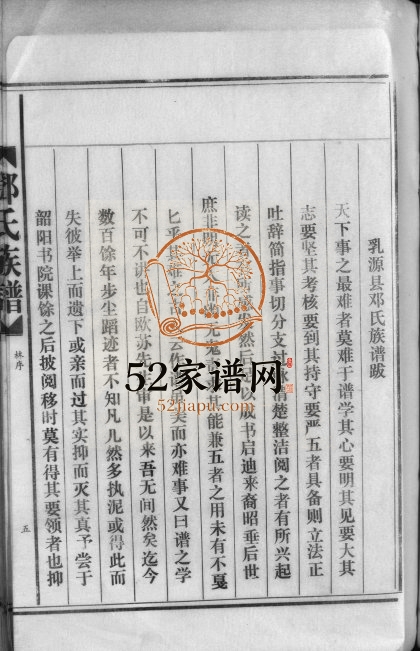 乳源县邓氏族谱跋
天下事之最难者莫难于谱学其心要明其见要大其
志要坚其考核要到其持守要严五者具备则立法正
吐辞简指事切分支清楚整洁阅之者有所兴起
读之者然后可以成书启迪来裔昭垂后世
庶非无其能兼五者之用未有不戛
匕乎其难矣而亦难事又曰谱之学
不可不讲也自欧苏先是以来吾无间然矣迄今
数百馀年步尘蹈迹者不知凡几然多执泥或得此而
失彼举上而遗下或亲而过其实抑而灭其真予尝于
韶阳书院课馀之后披阅移时莫有得其要领者也抑
邓氏族谱
序
五
52家谱网
52jiapu.com